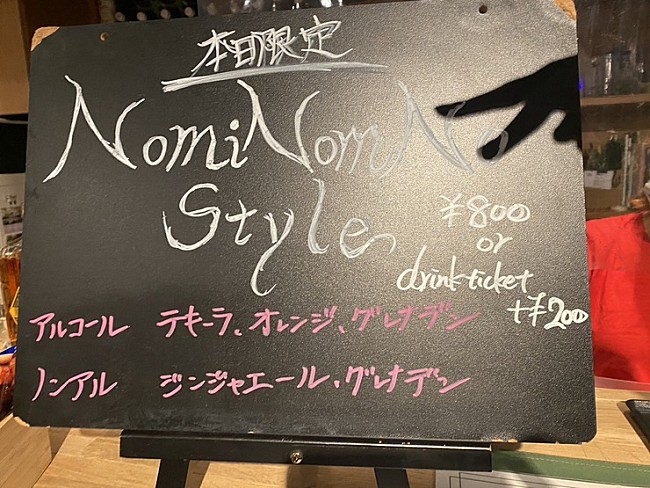 本日限定
NomiNomiNo
Style
¥800
or
drink ticket
+¥200
アルコール テキーラ、オレンジ、グレナデン
ノンアル ジンジャエール、グレナデン